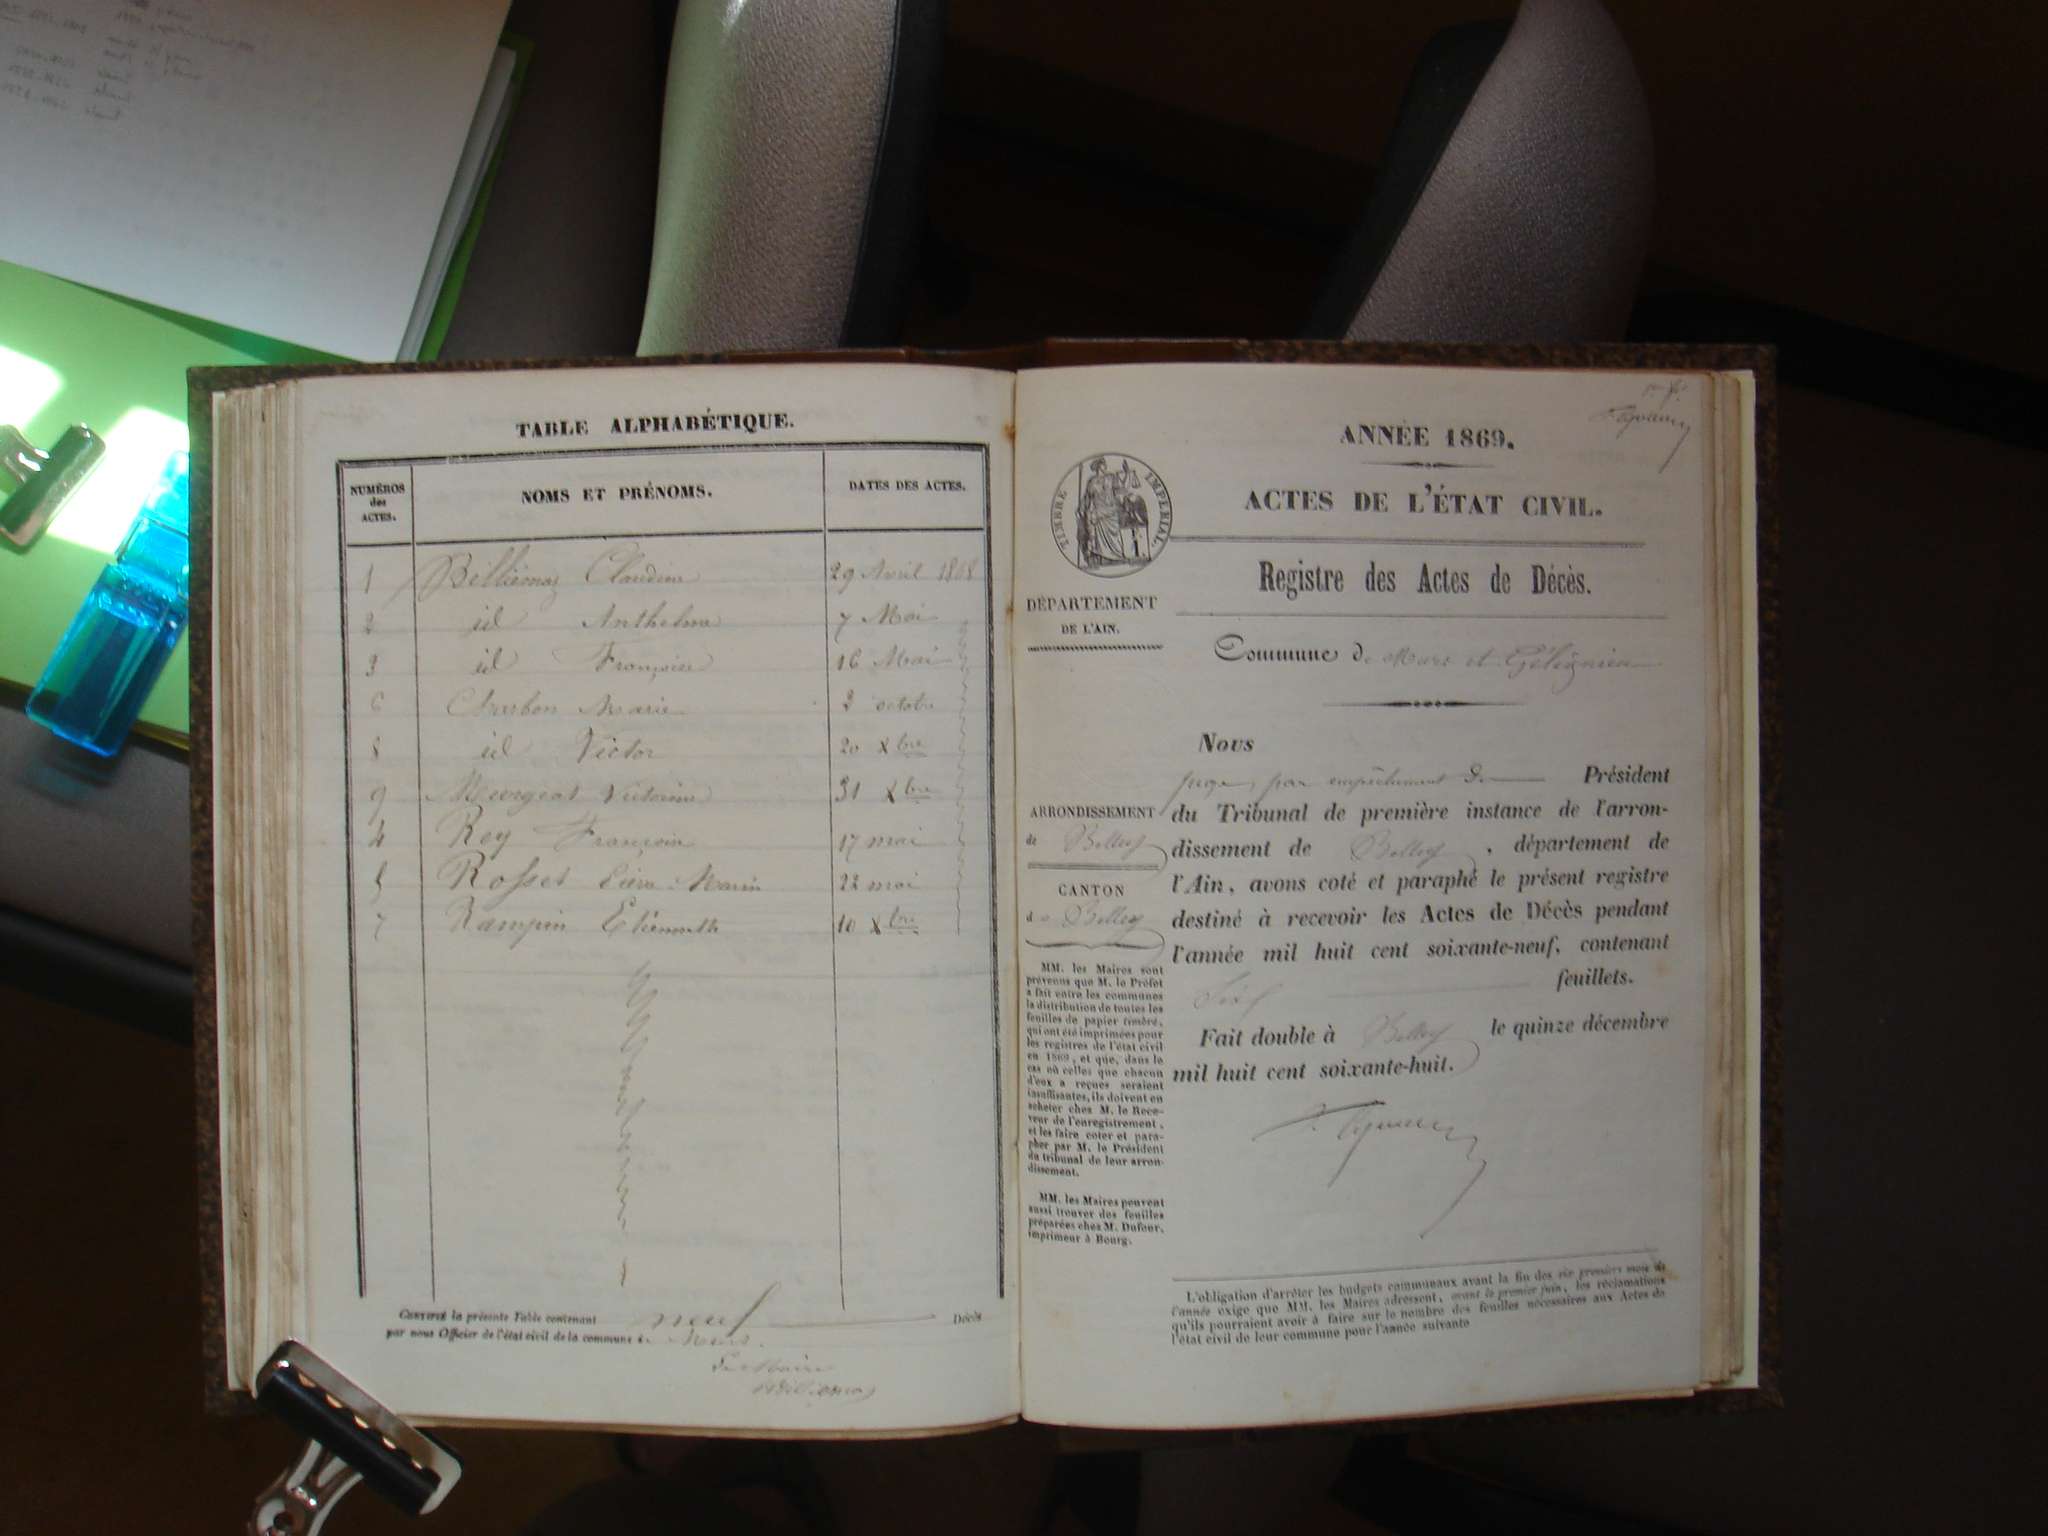 TABLE ALPHABÉTIQUE.
NUMÉROS des ACTES.
NOMS ET PRÉNOMS.
DATES DES ACTES.
1 Billiémaz Claudine 29 Avril 1868
2 id Anthelme 7 Mai
3 id Françoise 16 Mai
6 Charbon Marie 3 octobre
8 id Victor 20 Xbre
9 Murgeat Victorine 31 Xbre
4 Rey François 17 mai
5 Rosset Marin 22 mai
7 Rampin Etiennette 10 Xbre
CERTIFIÉ la présente Table contenant neuf Décès
par nous Officier de l'état civil de la commune de Murs.
Le Maire
Billiémaz
ANNÉE 1869.
ACTES DE L'ÉTAT CIVIL.
TIMBRE IMPÉRIAL.
Registre des Actes de Décès.
DÉPARTEMENT
DE L'AIN.
Commune de Murs et Gélignieu
ARRONDISSEMENT
de Belley
CANTON
de Belley
MM. les Maires sont
prévenus que M. le Préfet
a fait entre les communes
la distribution de toutes les
feuilles de papier timbré,
qui ont été imprimées pour
les registres de l'état civil
en 1869, et que, dans le
cas où celles que chacun
d'eux a reçues seraient
insuffisantes, ils doivent en
acheter chez M. le Rece-
veur de l'enregistrement,
et les faire coter et para-
pher par M. le Président
du tribunal de leur arron-
dissement.
MM. les Maires peuvent
aussi trouver des feuilles
préparées chez M. Dufour,
imprimeur à Bourg.
Nous
juge, par empêchement de Président
du Tribunal de première instance de l'arron-
dissement de Belley, département de
l'Ain, avons coté et paraphé le présent registre
destiné à recevoir les Actes de Décès pendant
l'année mil huit cent soixante-neuf, contenant
feuillets.
Fait double à Belley le quinze décembre
mil huit cent soixante-huit.
L'obligation d'arrêter les budgets communaux avant la fin des six premiers mois de
l'année exige que MM. les Maires adressent, avant le premier juin, les réclamations
qu'ils pourraient avoir à faire sur le nombre des feuilles nécessaires aux Actes de
l'état civil de leur commune pour l'année suivante